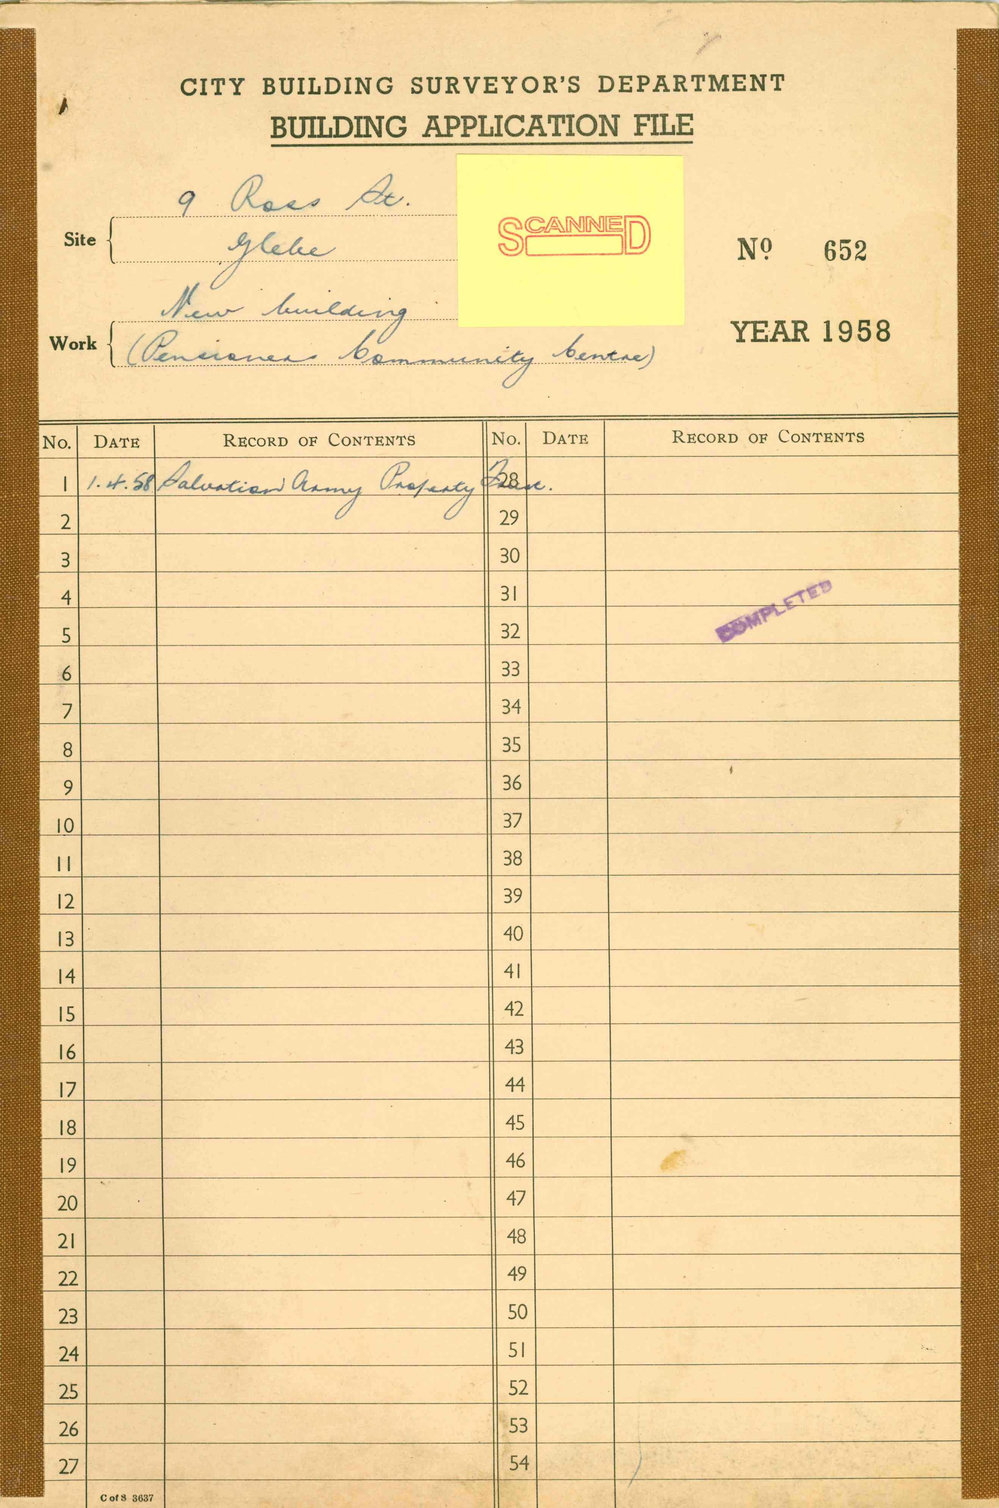 CITY BUILDING SURVEYOR'S DEPARTMENT
BUILDING APPLICATION FILE
Site
9 Ross St.
Glebe
SCANNED
No 652
Work
New building
(Pensioners Community Centre)
YEAR 1958
No. DATE RECORD OF CONTENTS No. DATE RECORD OF CONTENTS
1 1.4.58 Salvation Army Property Trust. 28
2 29
3 30
4 31
COMPLETED
5 32
6 33
7 34
8 35
9 36
10 37
11 38
12 39
13 40
14 41
15 42
16 43
17 44
18 45
19 46
20 47
21 48
22 49
23 50
24 51
25 52
26 53
27 54
C of S 3637